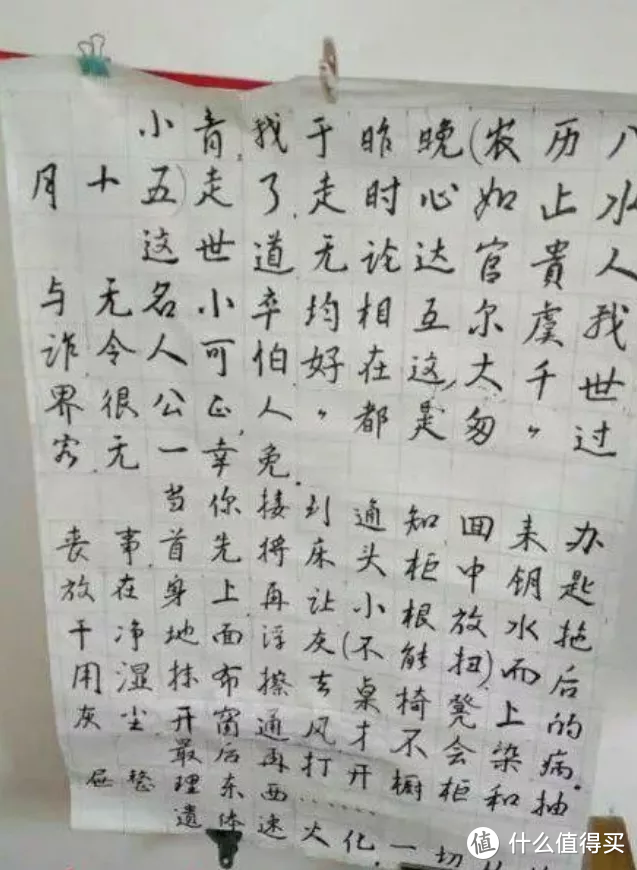 小青,我于昨晚(农历八
月十五)走了,走时心如止水
这世道无论达官貴人
与无名小卒均相互尔虞我
诈,令人可伯,好在这大千世
界很公正,人“都是匆匆”过
客.无一幸免.
当你接到通知回来办
丧事,首先将床头柜中钥匙
放在身上再让小根放水拖
干净地面浮灰(不能扭)而后
用湿抹布擦去桌椅凳上的
灰尘 开窗通风才不会染病.
最后再打开橱柜和抽
屉整理东西……
遗体速火化,一切
值 什么值得买